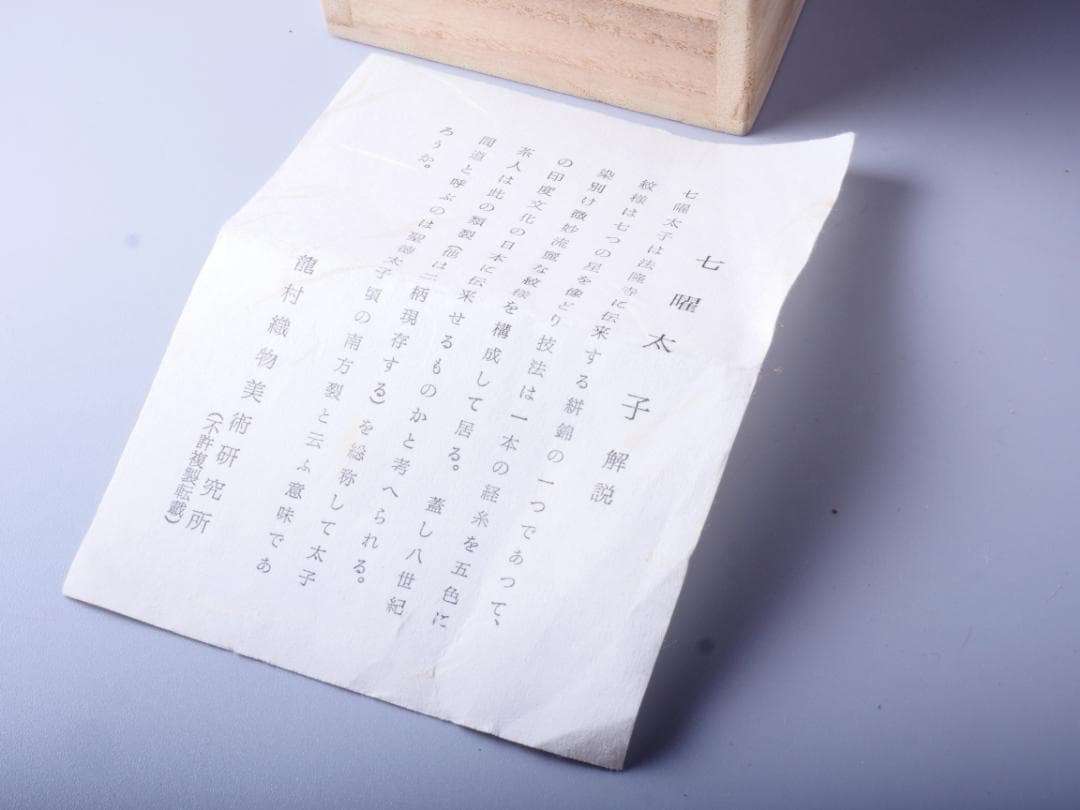 七曜太子解説
七曜太子は法隆寺に伝来する絣錦の一つであつて、
紋様は七つの星を像どり技法は一本の経糸を五色に
染別け微妙流麗な紋様を構成して居る。蓋し八世紀
の印度文化の日本に伝来せるものかと考へられる。
茶人は此の類裂(他は二柄現存する)を総称して太子
間道と呼ぶのは聖徳太子頃の南方裂と云ふ意味であ
ろうか。
龍村織物美術研究所
(不許複製転載)